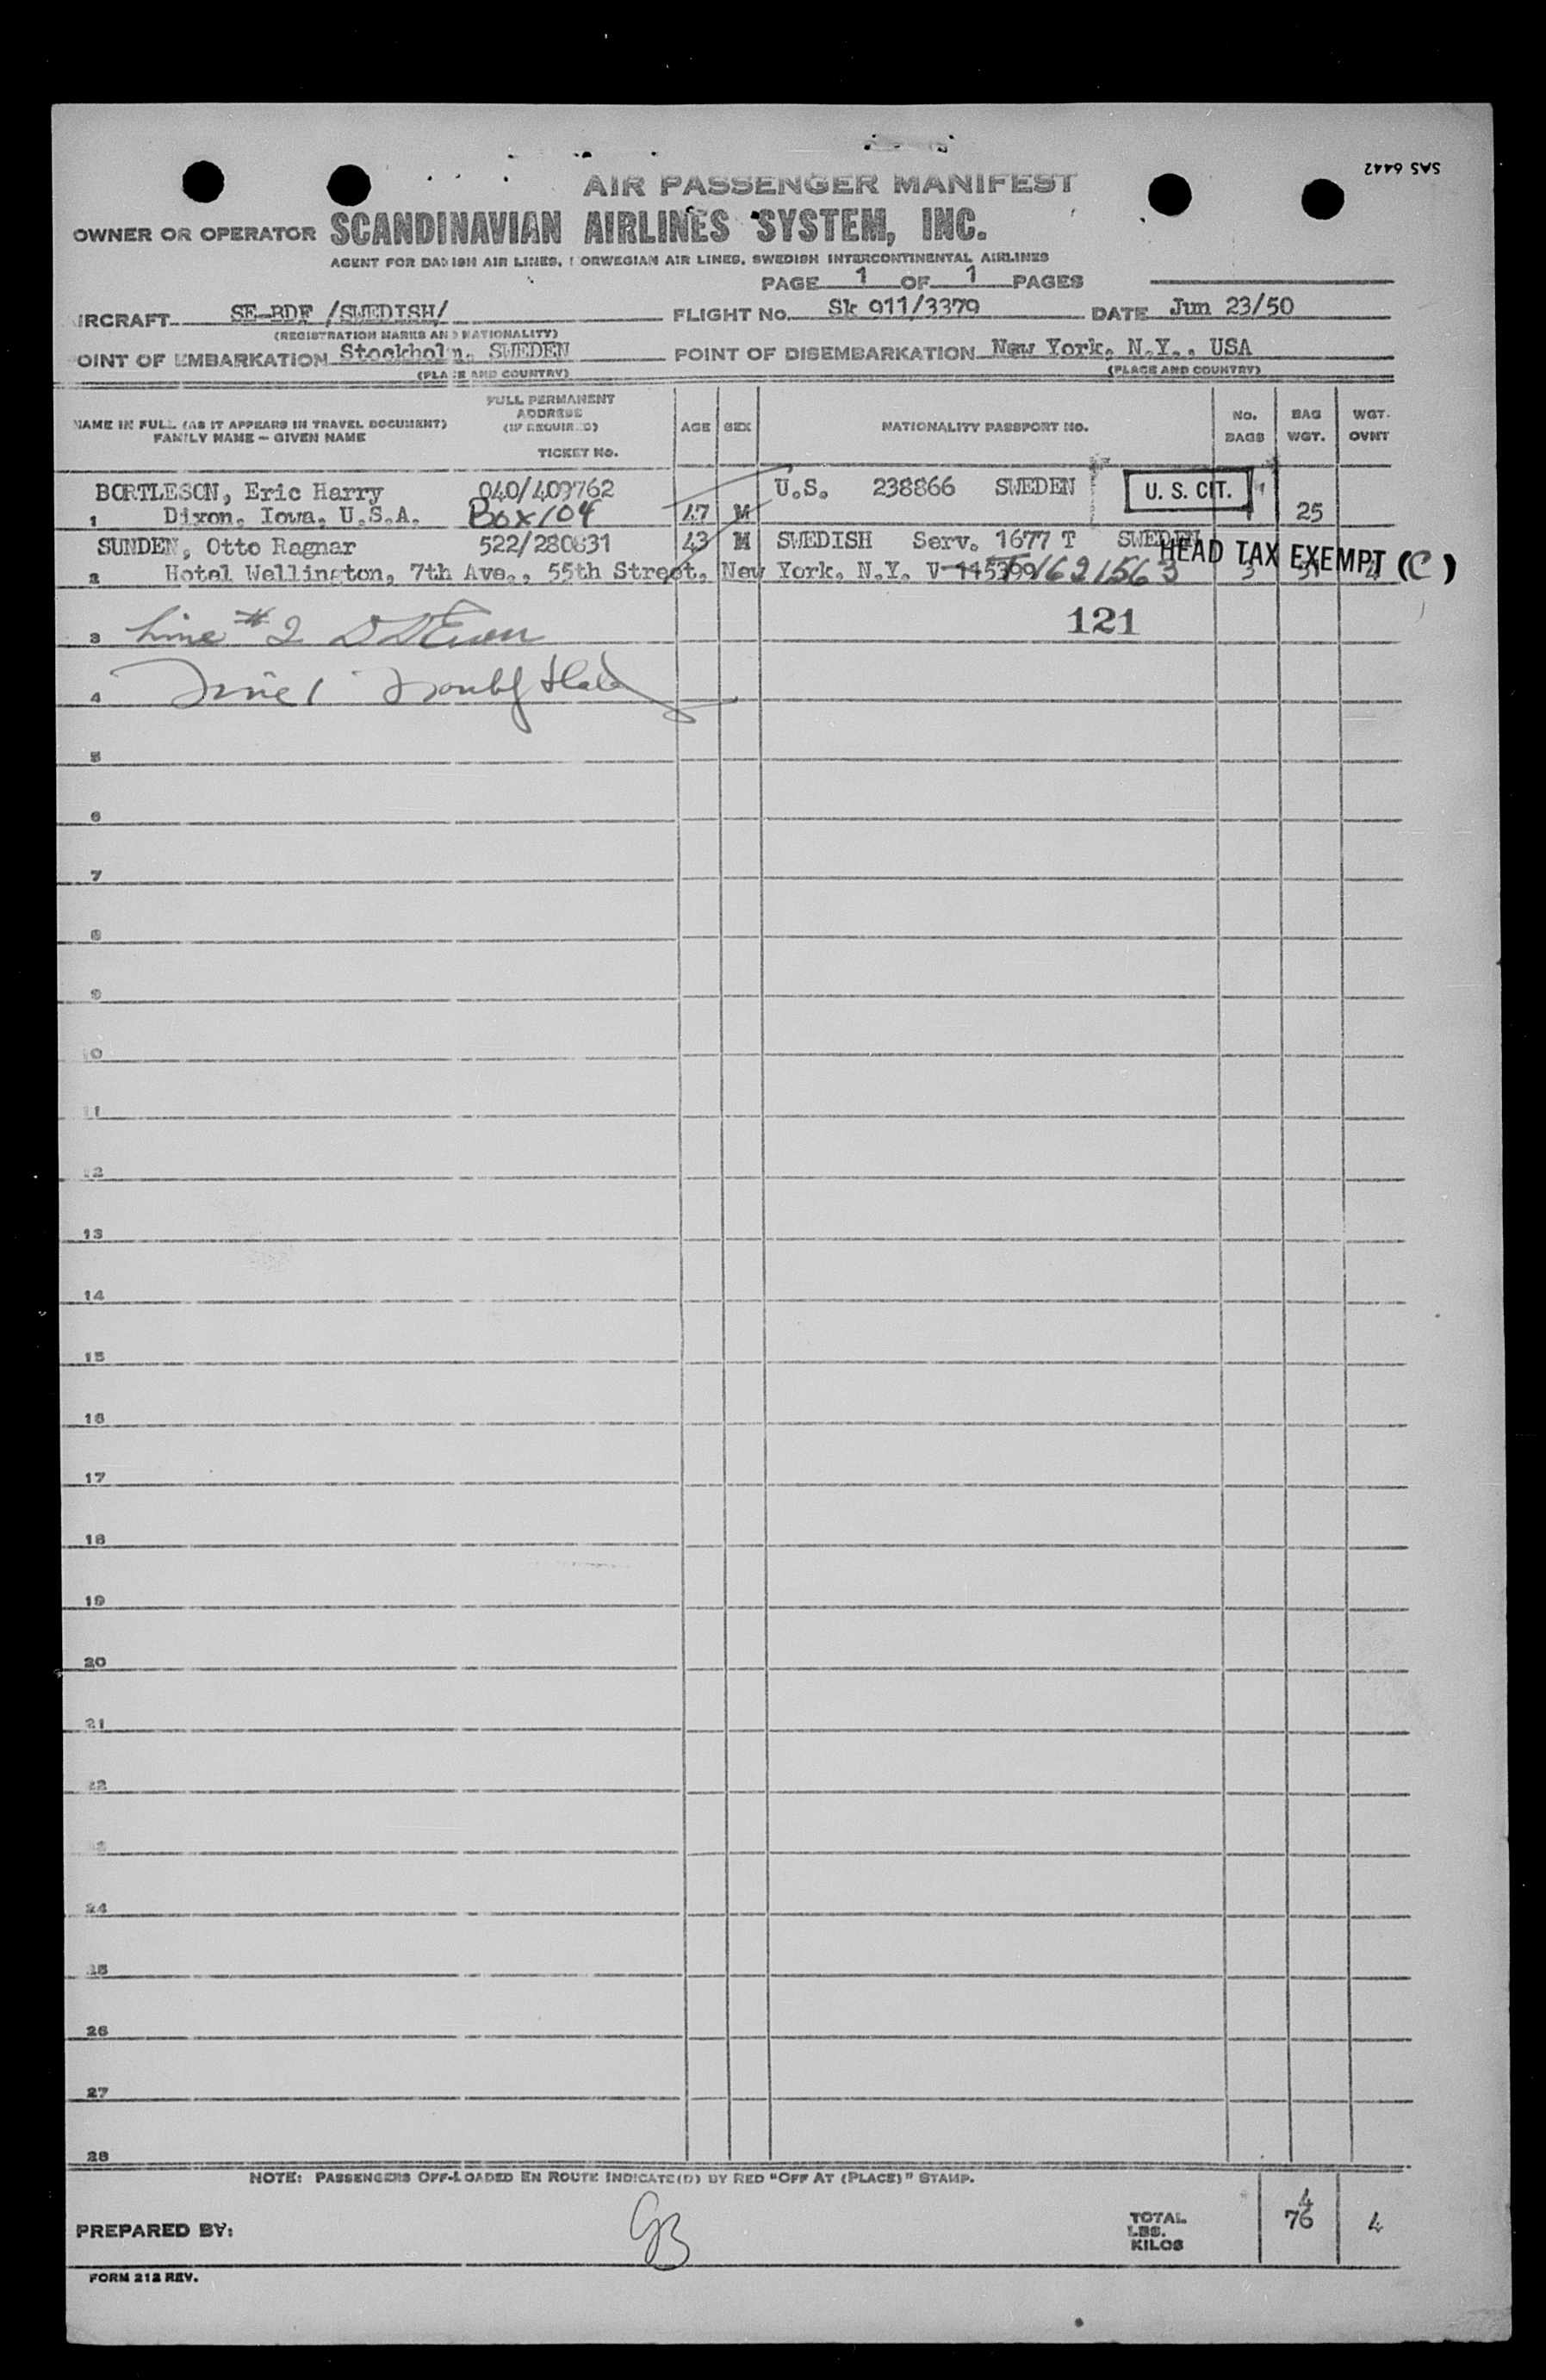 SAS 6442
AIR PASSENGER MANIFEST
OWNER OR OPERATOR SCANDINAVIAN AIRLINES SYSTEM, INC.
AGENT FOR DANISH AIR LINES, NORWEGIAN AIR LINES, SWEDISH INTERCONTINENTAL AIRLINES
PAGE 1 OF 1 PAGES
IRCRAFT SE-BDF /SWEDISH/ FLIGHT No. Sk 911/3379 DATE Jun 23/50
(REGISTRATION MARKS AND NATIONALITY)
OINT OF EMBARKATION Stockholm, SWEDEN POINT OF DISEMBARKATION New York, N.Y., USA
(PLACE AND COUNTRY) (PLACE AND COUNTRY)
NAME IN FULL (AS IT APPEARS IN TRAVEL DOCUMENT) FAMILY NAME – GIVEN NAME FULL PERMANENT ADDRESS (IF REQUIRED) TICKET No. AGE SEX NATIONALITY PASSPORT NO. No. BAGS BAG WGT. WGT. OVNT
BORTLESON, Eric Harry 040/409762 U.S. 238866 SWEDEN U. S. CIT.
1 Dixon, Iowa, U.S.A. Box 104 47 M 1 25
SUNDEN, Otto Ragnar 522/280631 43 M SWEDISH Serv. 1677 T SWEDEN HEAD TAX EXEMPT (C)
2 Hotel Wellington, 7th Ave., 55th Street, New York, N.Y. V-115399 V621563 3 51 4
3 Line #2 121
4 Line 1
5
6
7
8
9
10
11
12
13
14
15
16
17
18
19
20
21
22
23
24
25
26
27
28
NOTE: PASSENGERS OFF-LOADED EN ROUTE INDICATE(D) BY RED "OFF AT (PLACE)" STAMP.
PREPARED BY: GB TOTAL LBS. KILOS 4 76 4
FORM 212 REV.